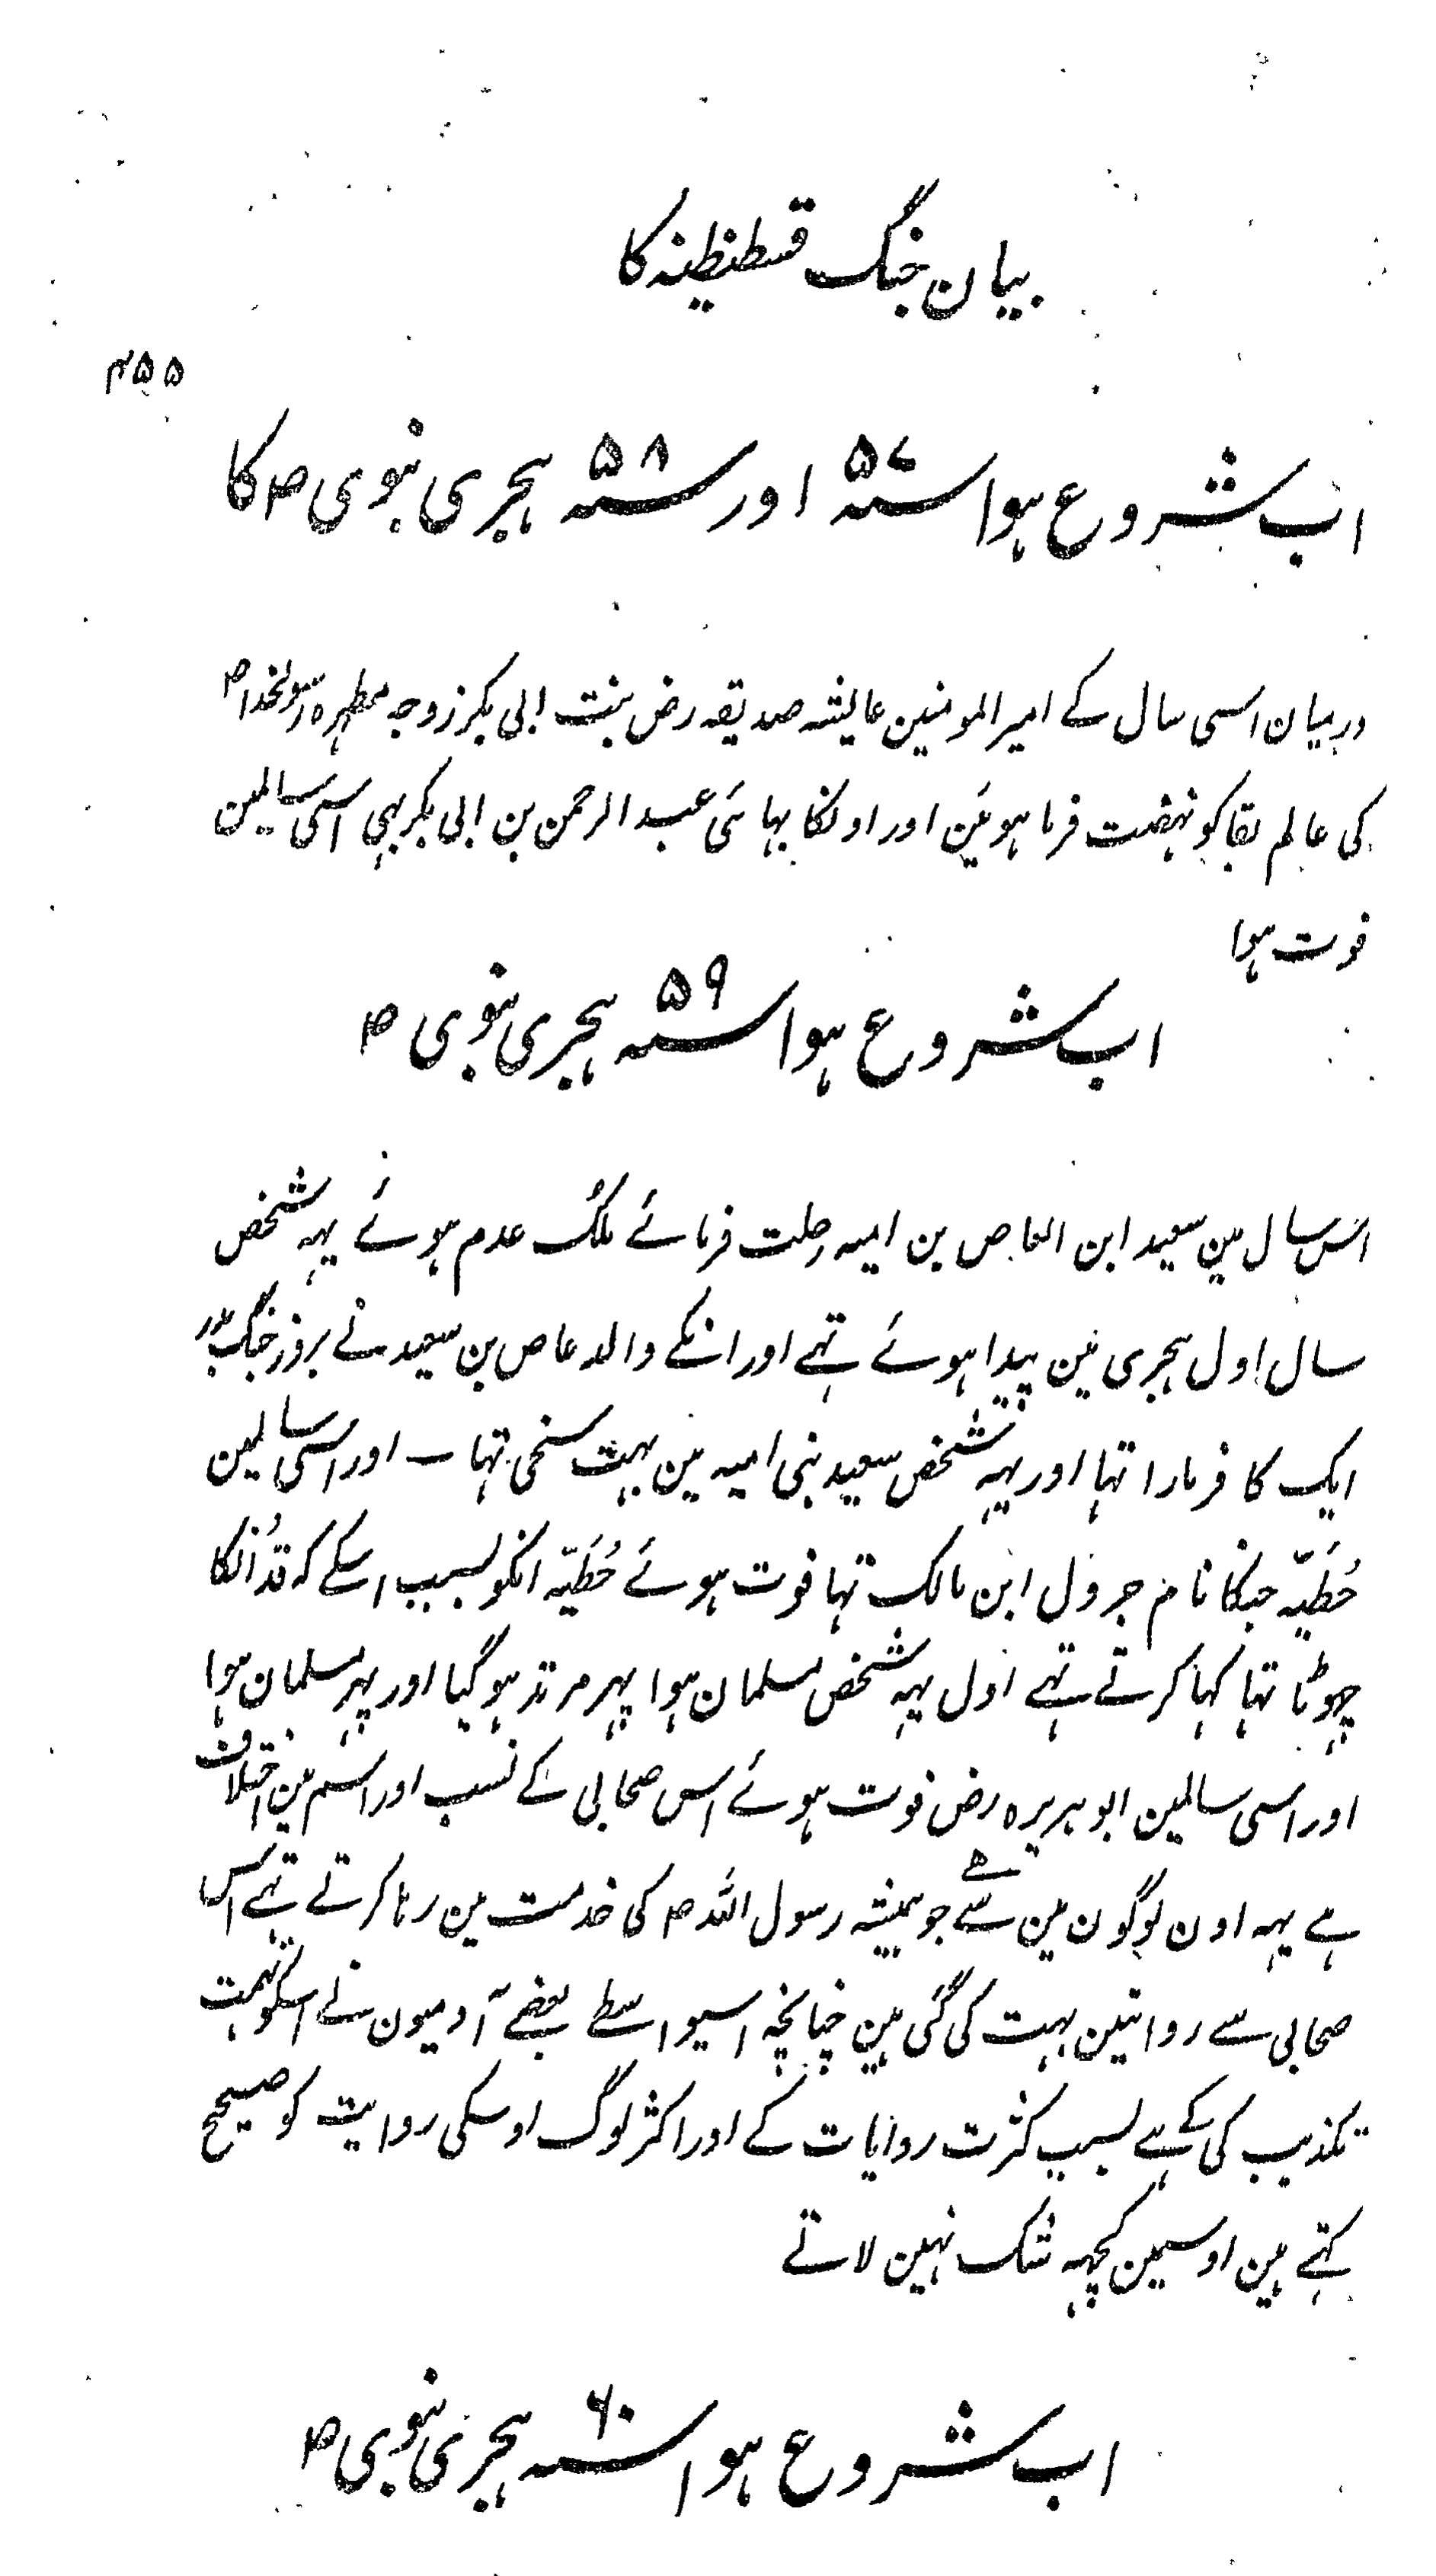 بیان جنگ قسطنطینہ کا
۴۵۵
اب شروع ہوا سنہ ۵۷ اور سنہ ۵۸ ہجری نبوی ص کا
درمیان اسی سال کے امیر المومنین عایشہ صدیقہ رض بنت ابی بکر زوجہ مطہرہ رسولخدا ص
کی عالم بقا کو نہضت فرما ہوئین اور اونکا بہائی عبد الرحمن بن ابی بکر بہی اسی سالمین
فوت ہوا
اب شروع ہوا سنہ ۵۹ ہجری نبوی ص
اس سال مین سعید ابن العاص بن امیہ رحلت فرمائے ملک عدم ہوئے یہہ شخص
سال اول ہجری مین پیدا ہوئے تہے اور انکے والد عاص بن سعید نے بروز جنگ بدر
ایک کافر مارا تہا اور یہہ شخص سعید بنی امیہ مین بہت سخی تہا ۔ اور اسی سالمین
حُطَیّہ جنکا نام جرول ابن مالک تہا فوت ہوئے حُطَیّہ انکو بسبب اسکے کہ قد اُنکا
چہوٹا تہا کہا کرتے تہے اول یہہ شخص مسلمان ہوا پہر مرتد ہو گیا اور پہر مسلمان ہوا
اور اسی سالمین ابو ہریرہ رض فوت ہوئے اس صحابی کے نسب اور اسم مین اختلاف
ہے یہہ اون لوگون مین سے ہے جو ہمیشہ رسول اللہ ص کی خدمت مین رہا کرتے تہے اس
صحابی سے روایتین بہت کی گئی ہین چنانچہ اسیواسطے بعضے آدمیون نے اسکو تہمت
تکذیب کی کے ہے بسبب کثرت روایات کے اور اکثر لوگ اوسکی روایت کو صحیح
کہتے ہین اوسمین کچہہ شک نہین لاتے
اب شروع ہوا سنہ ۶۰ ہجری نبوی ص